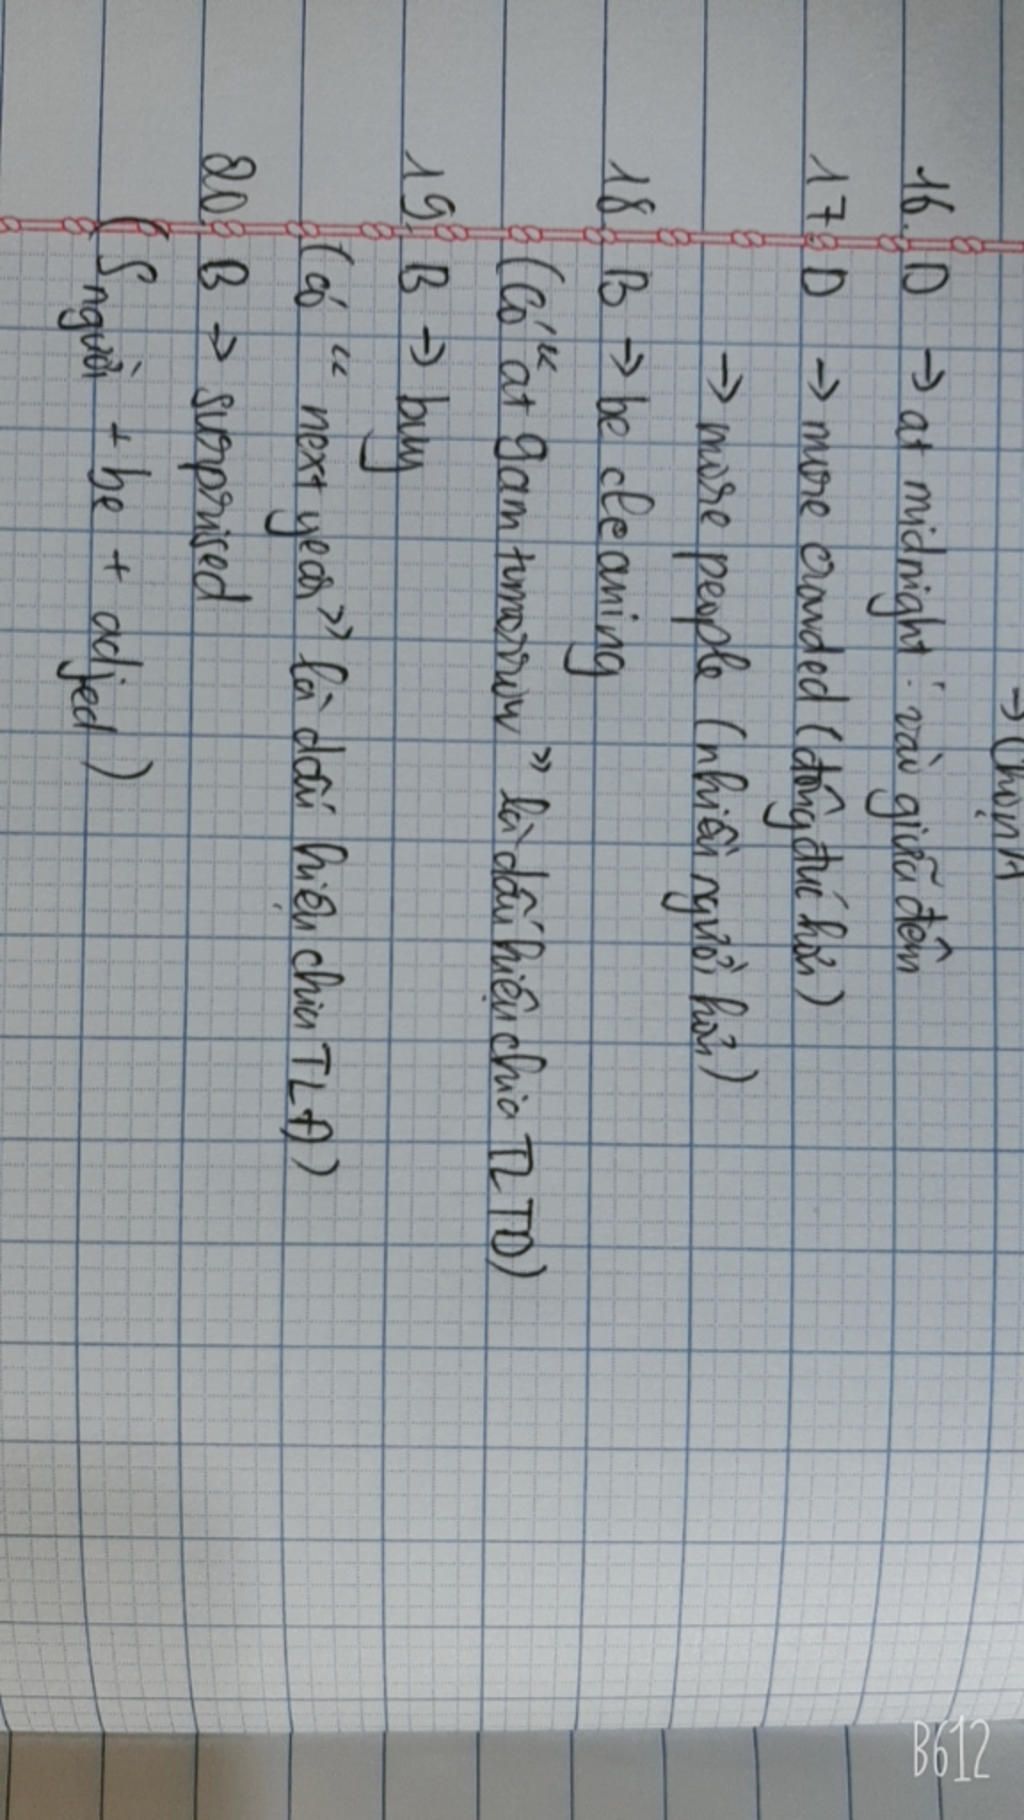 → Chọn A
16. D → at midnight: vào giữa đêm
17. D → more crowded (đông đúc hơn)
→ more people (nhiều người hơn)
18. B → be cleaning
(Có "at 9am tomorrow" là dấu hiệu chia TLTD)
19. B → buy
(có "next year" là dấu hiệu chia TLĐ)
20. B → surprised
(S người + be + adjed)
B612